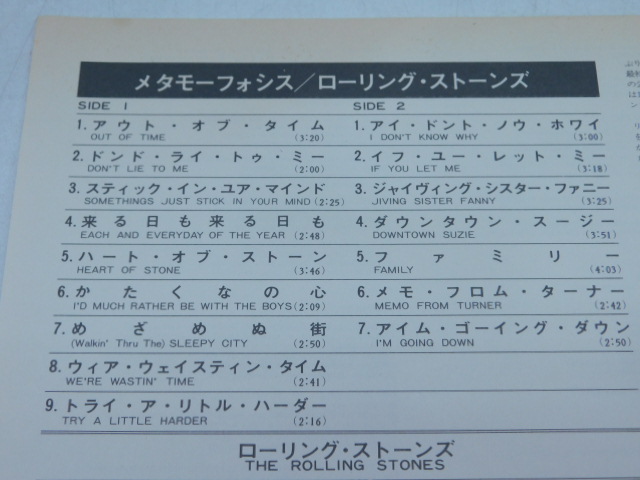 メタモーフォシス/ローリング・ストーンズ
SIDE 1
1.アウト・オブ・タイム
OUT OF TIME (3:20)
2.ドンド・ライ・トゥ・ミー
DON'T LIE TO ME (2:00)
3.スティック・イン・ユア・マインド
SOMETHINGS JUST STICK IN YOUR MIND (2:25)
4.来る日も来る日も
EACH AND EVERYDAY OF THE YEAR (2:48)
5.ハート・オブ・ストーン
HEART OF STONE (3:46)
6.かたくなの心
I'D MUCH RATHER BE WITH THE BOYS (2:09)
7.めざめぬ街
(Walkin' Thru The) SLEEPY CITY (2:50)
8.ウィア・ウェイスティン・タイム
WE'RE WASTIN' TIME (2:41)
9.トライ・ア・リトル・ハーダー
TRY A LITTLE HARDER (2:16)
SIDE 2
1.アイ・ドント・ノウ・ホワイ
I DON'T KNOW WHY (3:00)
2.イフ・ユー・レット・ミー
IF YOU LET ME (3:18)
3.ジャイヴィング・シスター・ファニー
JIVING SISTER FANNY (3:25)
4.ダウンタウン・スージー
DOWNTOWN SUZIE (3:51)
5.ファミリー
FAMILY (4:03)
6.メモ・フロム・ターナー
MEMO FROM TURNER (2:42)
7.アイム・ゴーイング・ダウン
I'M GOING DOWN (2:50)
ローリング・ストーンズ
THE ROLLING STONES